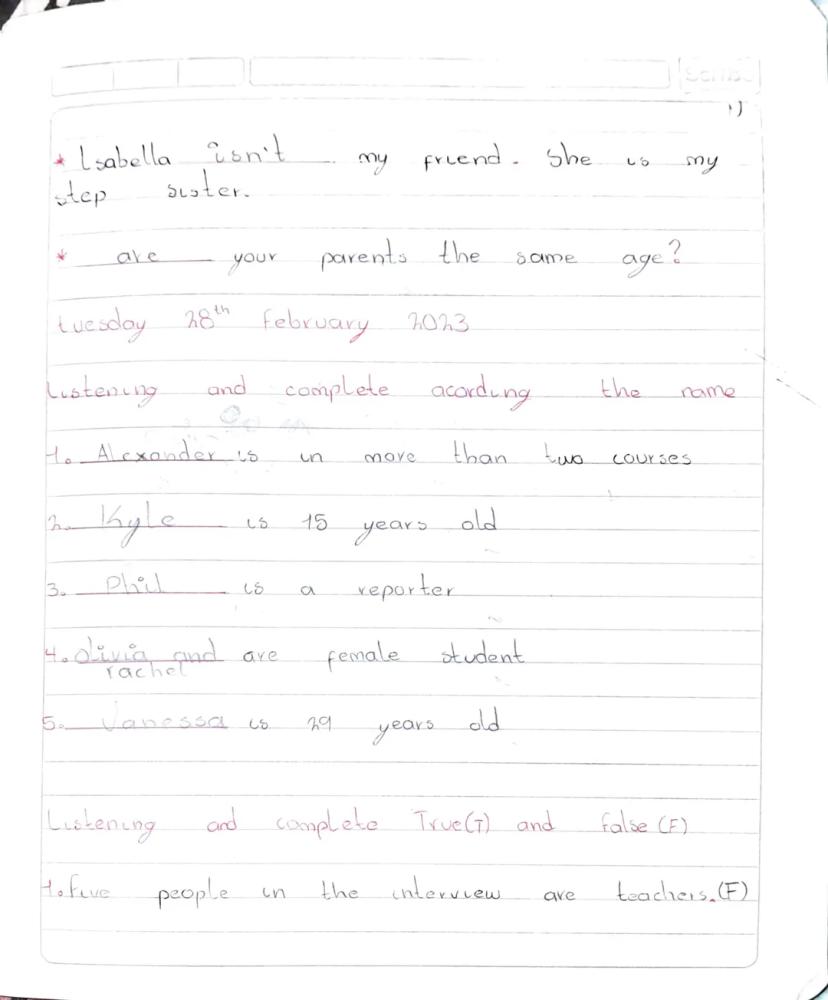 Scribe
1)
* Isabella isn't my friend. She is my
step sister.
* are your parents the same age?
tuesday 28th february 2023
Listening and complete acording the name
1. Alexander is in more than two courses
2. Kyle is 15 years old
3. Phil is a reporter
4. Olivia and are female student
rachel
5. Vanessa is 29 years old
Listening and complete True(T) and false (F)
1. five people in the interview are teachers. (F)